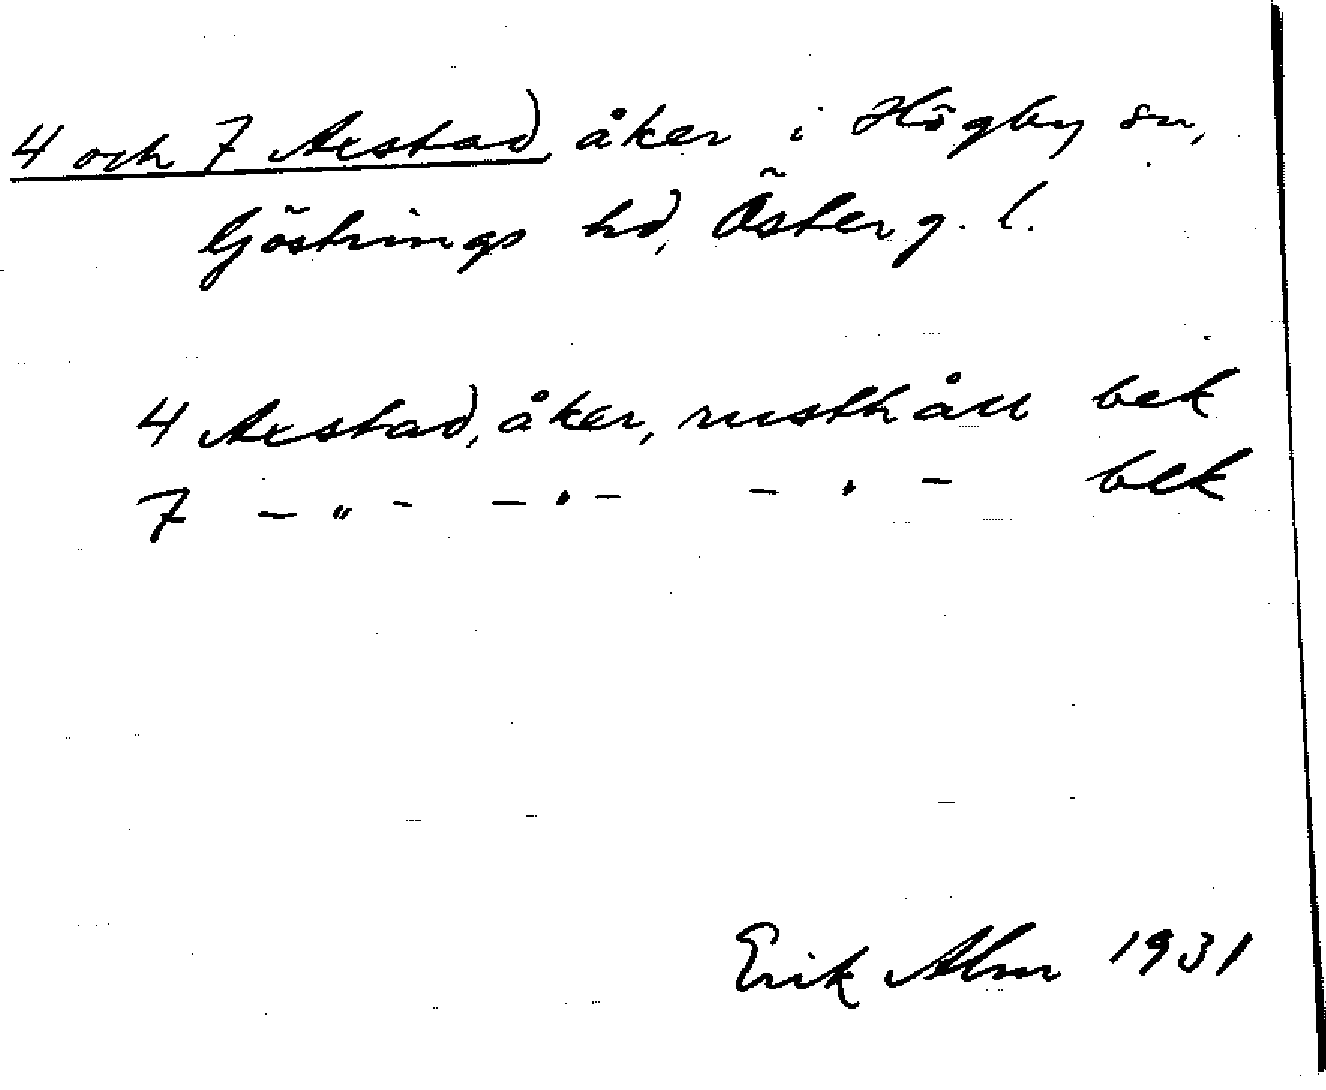 4 och 7 Axstad, åker i Högby sn,
Göstrings hd, Österg. l.
4 Axstad, åker, rusthåll bek
7 - " - - " - - " - bek
Erik Alm 1931